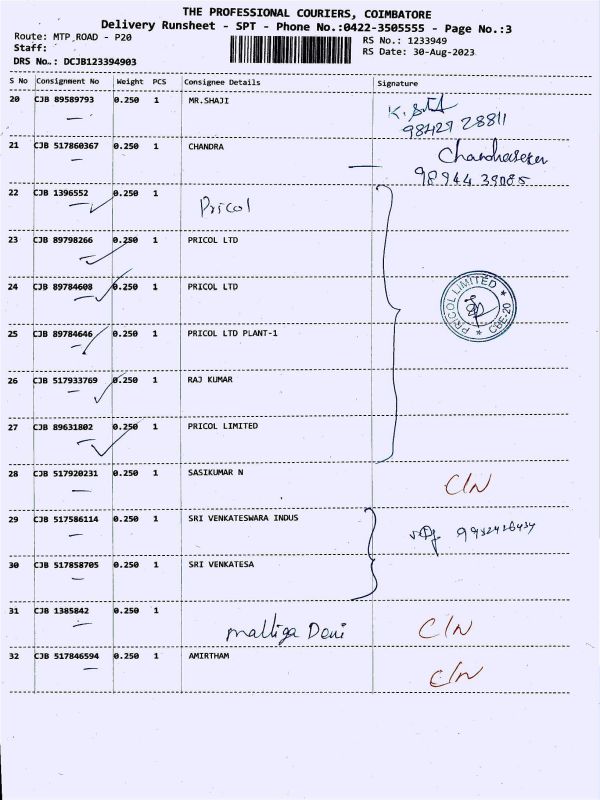 THE PROFESSIONAL COURIERS, COIMBATORE
Delivery Runsheet - SPT - Phone No.:0422-3505555 - Page No.:3
Route: MTP ROAD - P20
RS No.: 1233949
Staff:
RS Date: 30-Aug-2023
DRS No.: DCJB123394903
S No Consignment No Weight PCS Consignee Details Signature
20 CJB 89589793 0.250 1 MR.SHAJI
98429 28811
21 CJB 517860367 0.250 1 CHANDRA Chandrasekar
98944 39085
22 CJB 1396552 0.250 1 Pricol
23 CJB 89798266 0.250 1 PRICOL LTD
24 CJB 89784608 0.250 1 PRICOL LTD
PRICOL LIMITED * CBE-20 *
25 CJB 89784646 0.250 1 PRICOL LTD PLANT-1
26 CJB 517933769 0.250 1 RAJ KUMAR
27 CJB 89631802 0.250 1 PRICOL LIMITED
28 CJB 517920231 0.250 1 SASIKUMAR N C/N
29 CJB 517586114 0.250 1 SRI VENKATESWARA INDUS
30 CJB 517858705 0.250 1 SRI VENKATESA
31 CJB 1385842 0.250 1 malliga Devi C/N
32 CJB 517846594 0.250 1 AMIRTHAM C/N